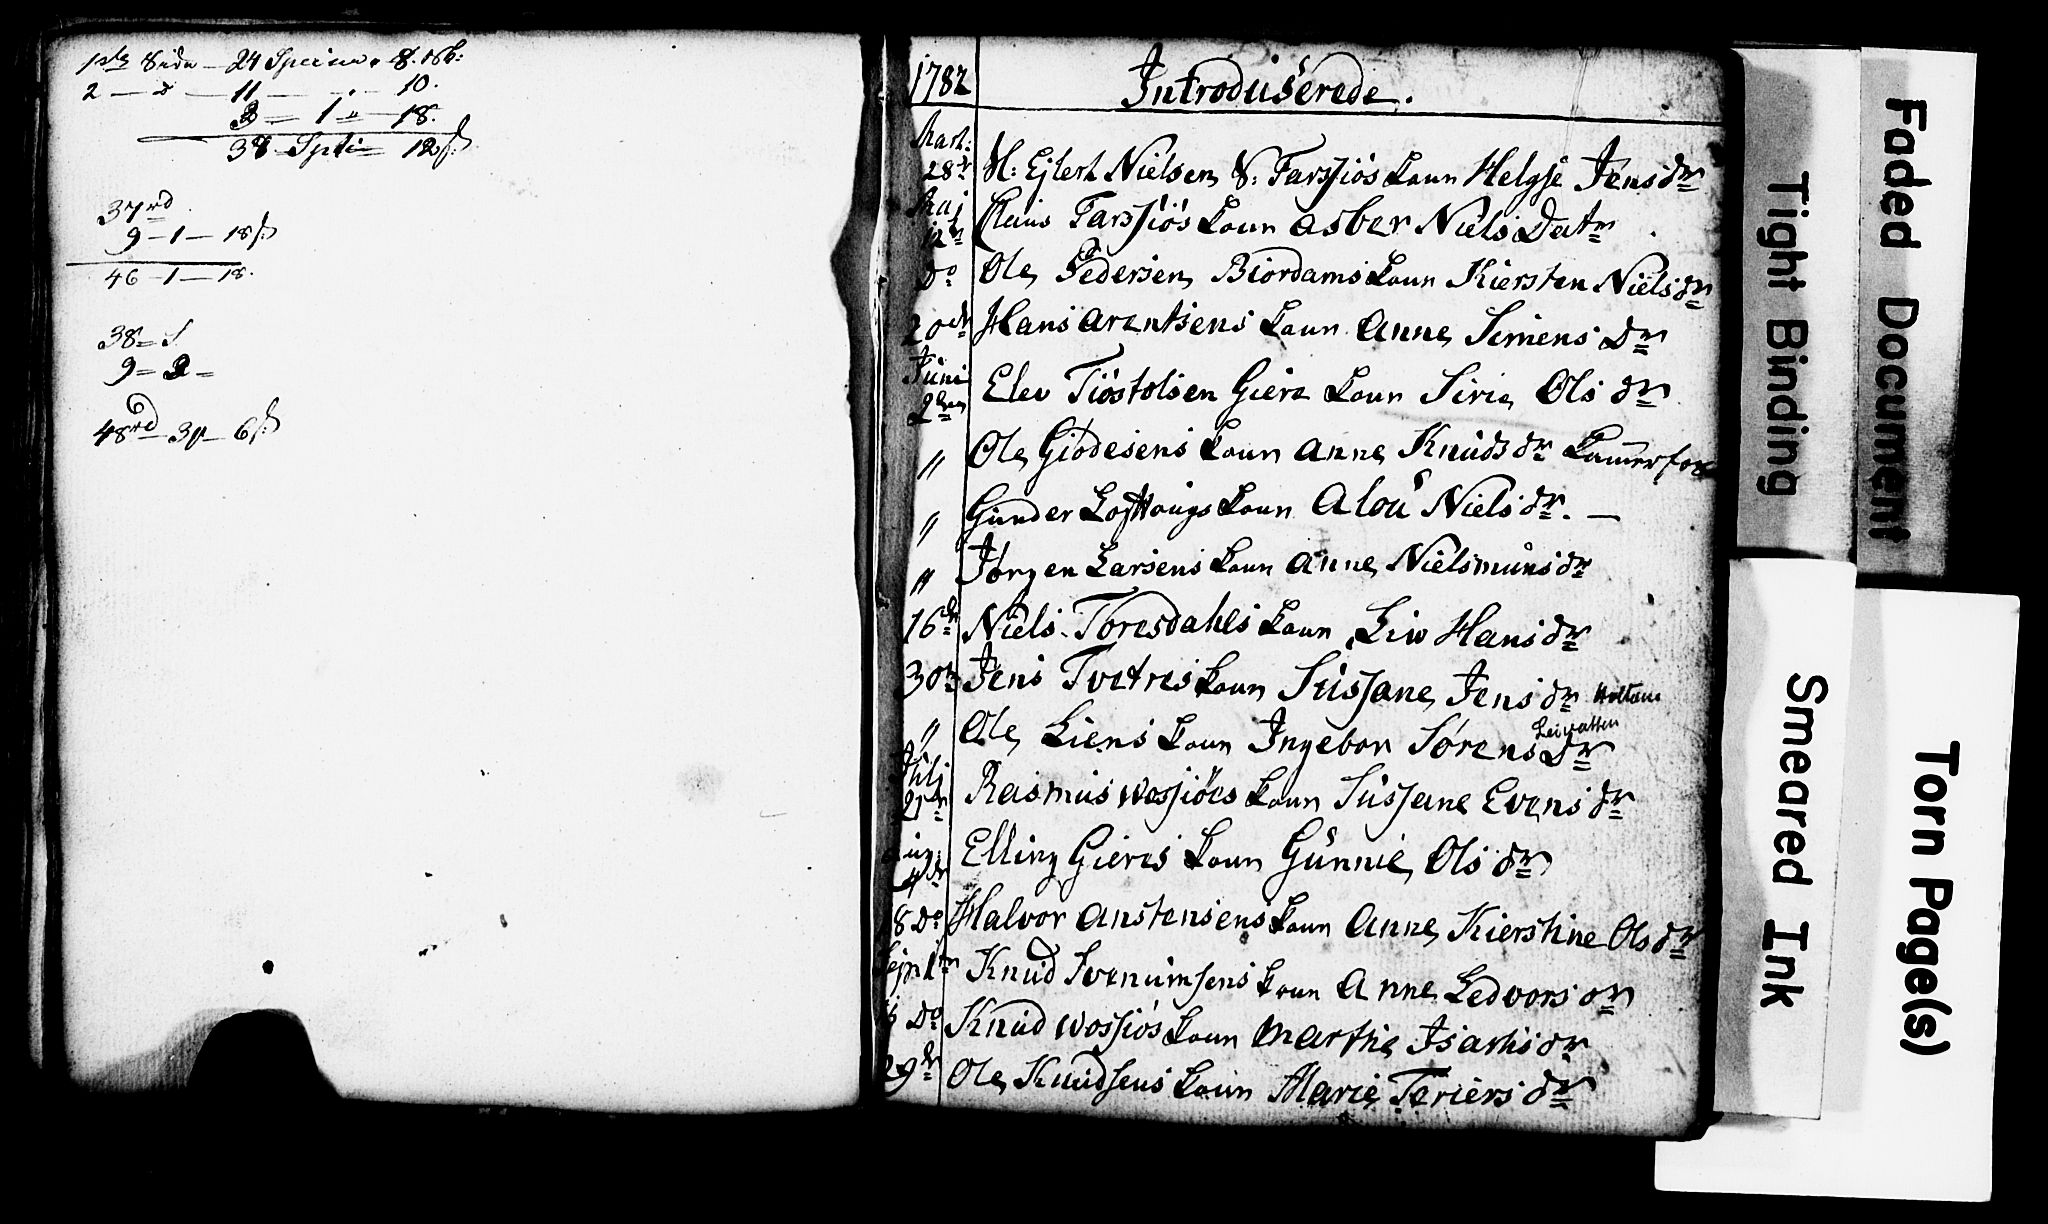 1ste Side - 24 Specier. 8. sk:
2 - d - 11 - " - 10.
3 - 1 - " - 18.
38 Spti - 12 s:
37 rd
9 - 1 - 18 s:
46 - 1 - 18.
38 -
9 - 2 -
48 rd - 3 - 6 s:
1782 Introduserede.
Mart:
28de H: Ejlert Nielsen V: Farsjiös Koun Helgje Jensdr
Maj
12te Claus Farsjiös Koun Asber Niels Datr
do Ole Pedersen Biordams Koun Kiersten Nielsdr
20de Hans Arentsens Koun Anne Simens Dr
Juni
2den Elev Tiöstolsen Giere Koun Sirie Ols dr
" Ole Giödesens Koun Anne Knudsdr
" Gunder Koun Alou Nielsdr. -
" Jörgen Larsens Koun Anne Nielsmunsdr
16de Niels Toresdahls Koun Liw Hansdr
30te Jens Tvetres Koun Susjane Jensdr Holtane
" Ole Liens Koun Ingebor Sørens Dr
Juli
21de Rasmus Wosjiöes Koun Susjane Evens dr
Aug:
4de Elling Gieres Koun Gunnie Ols dr
18 Do Halvor Anstensens Koun Anne Kierstine Olsdr
Sept 1te Knud Svenumsens Koun Anne Ledvorsdr
Do Knud Wosjiös Koun Marthe Isachsdr
29de Ole Knudsens Koun Marie Teriers dr
Faded Document
Tight Binding
Smeared Ink
Torn Page(s)